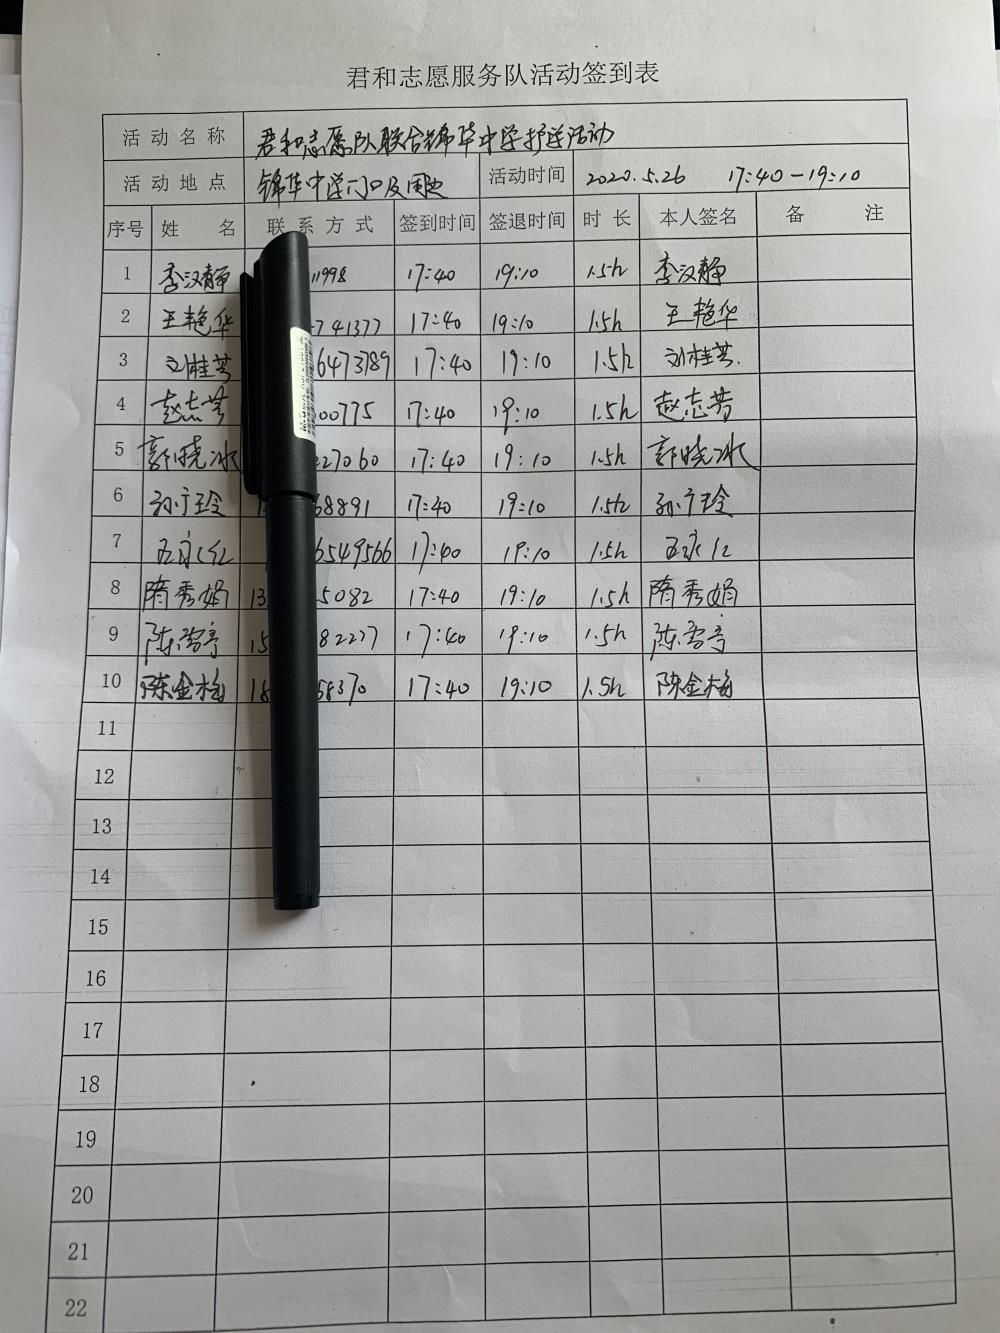 君和志愿服务队活动签到表
活动名称 君和志愿队联合锦华中学护送活动
活动地点 锦华中学门口及周边 活动时间 2020.5.26 17:40-19:10
序号 姓名 联系方式 签到时间 签退时间 时长 本人签名 备注
1 李汉静 11998 17:40 19:10 1.5h 李汉静
2 王艳华 741377 17:40 19:10 1.5h 王艳华
3 刘桂芳 6473789 17:40 19:10 1.5h 刘桂芳
4 赵志芳 00775 17:40 19:10 1.5h 赵志芳
5 郭晓冰 227060 17:40 19:10 1.5h 郭晓冰
6 孙广玲 68891 17:40 19:10 1.5h 孙广玲
7 永红 6549566 17:40 19:10 1.5h 永红
8 隋秀娟 13 5082 17:40 19:10 1.5h 隋秀娟
9 陈雪亭 15 82277 17:40 19:10 1.5h 陈雪亭
10 陈金梅 18 58370 17:40 19:10 1.5h 陈金梅
11
12
13
14
15
16
17
18
19
20
21
22